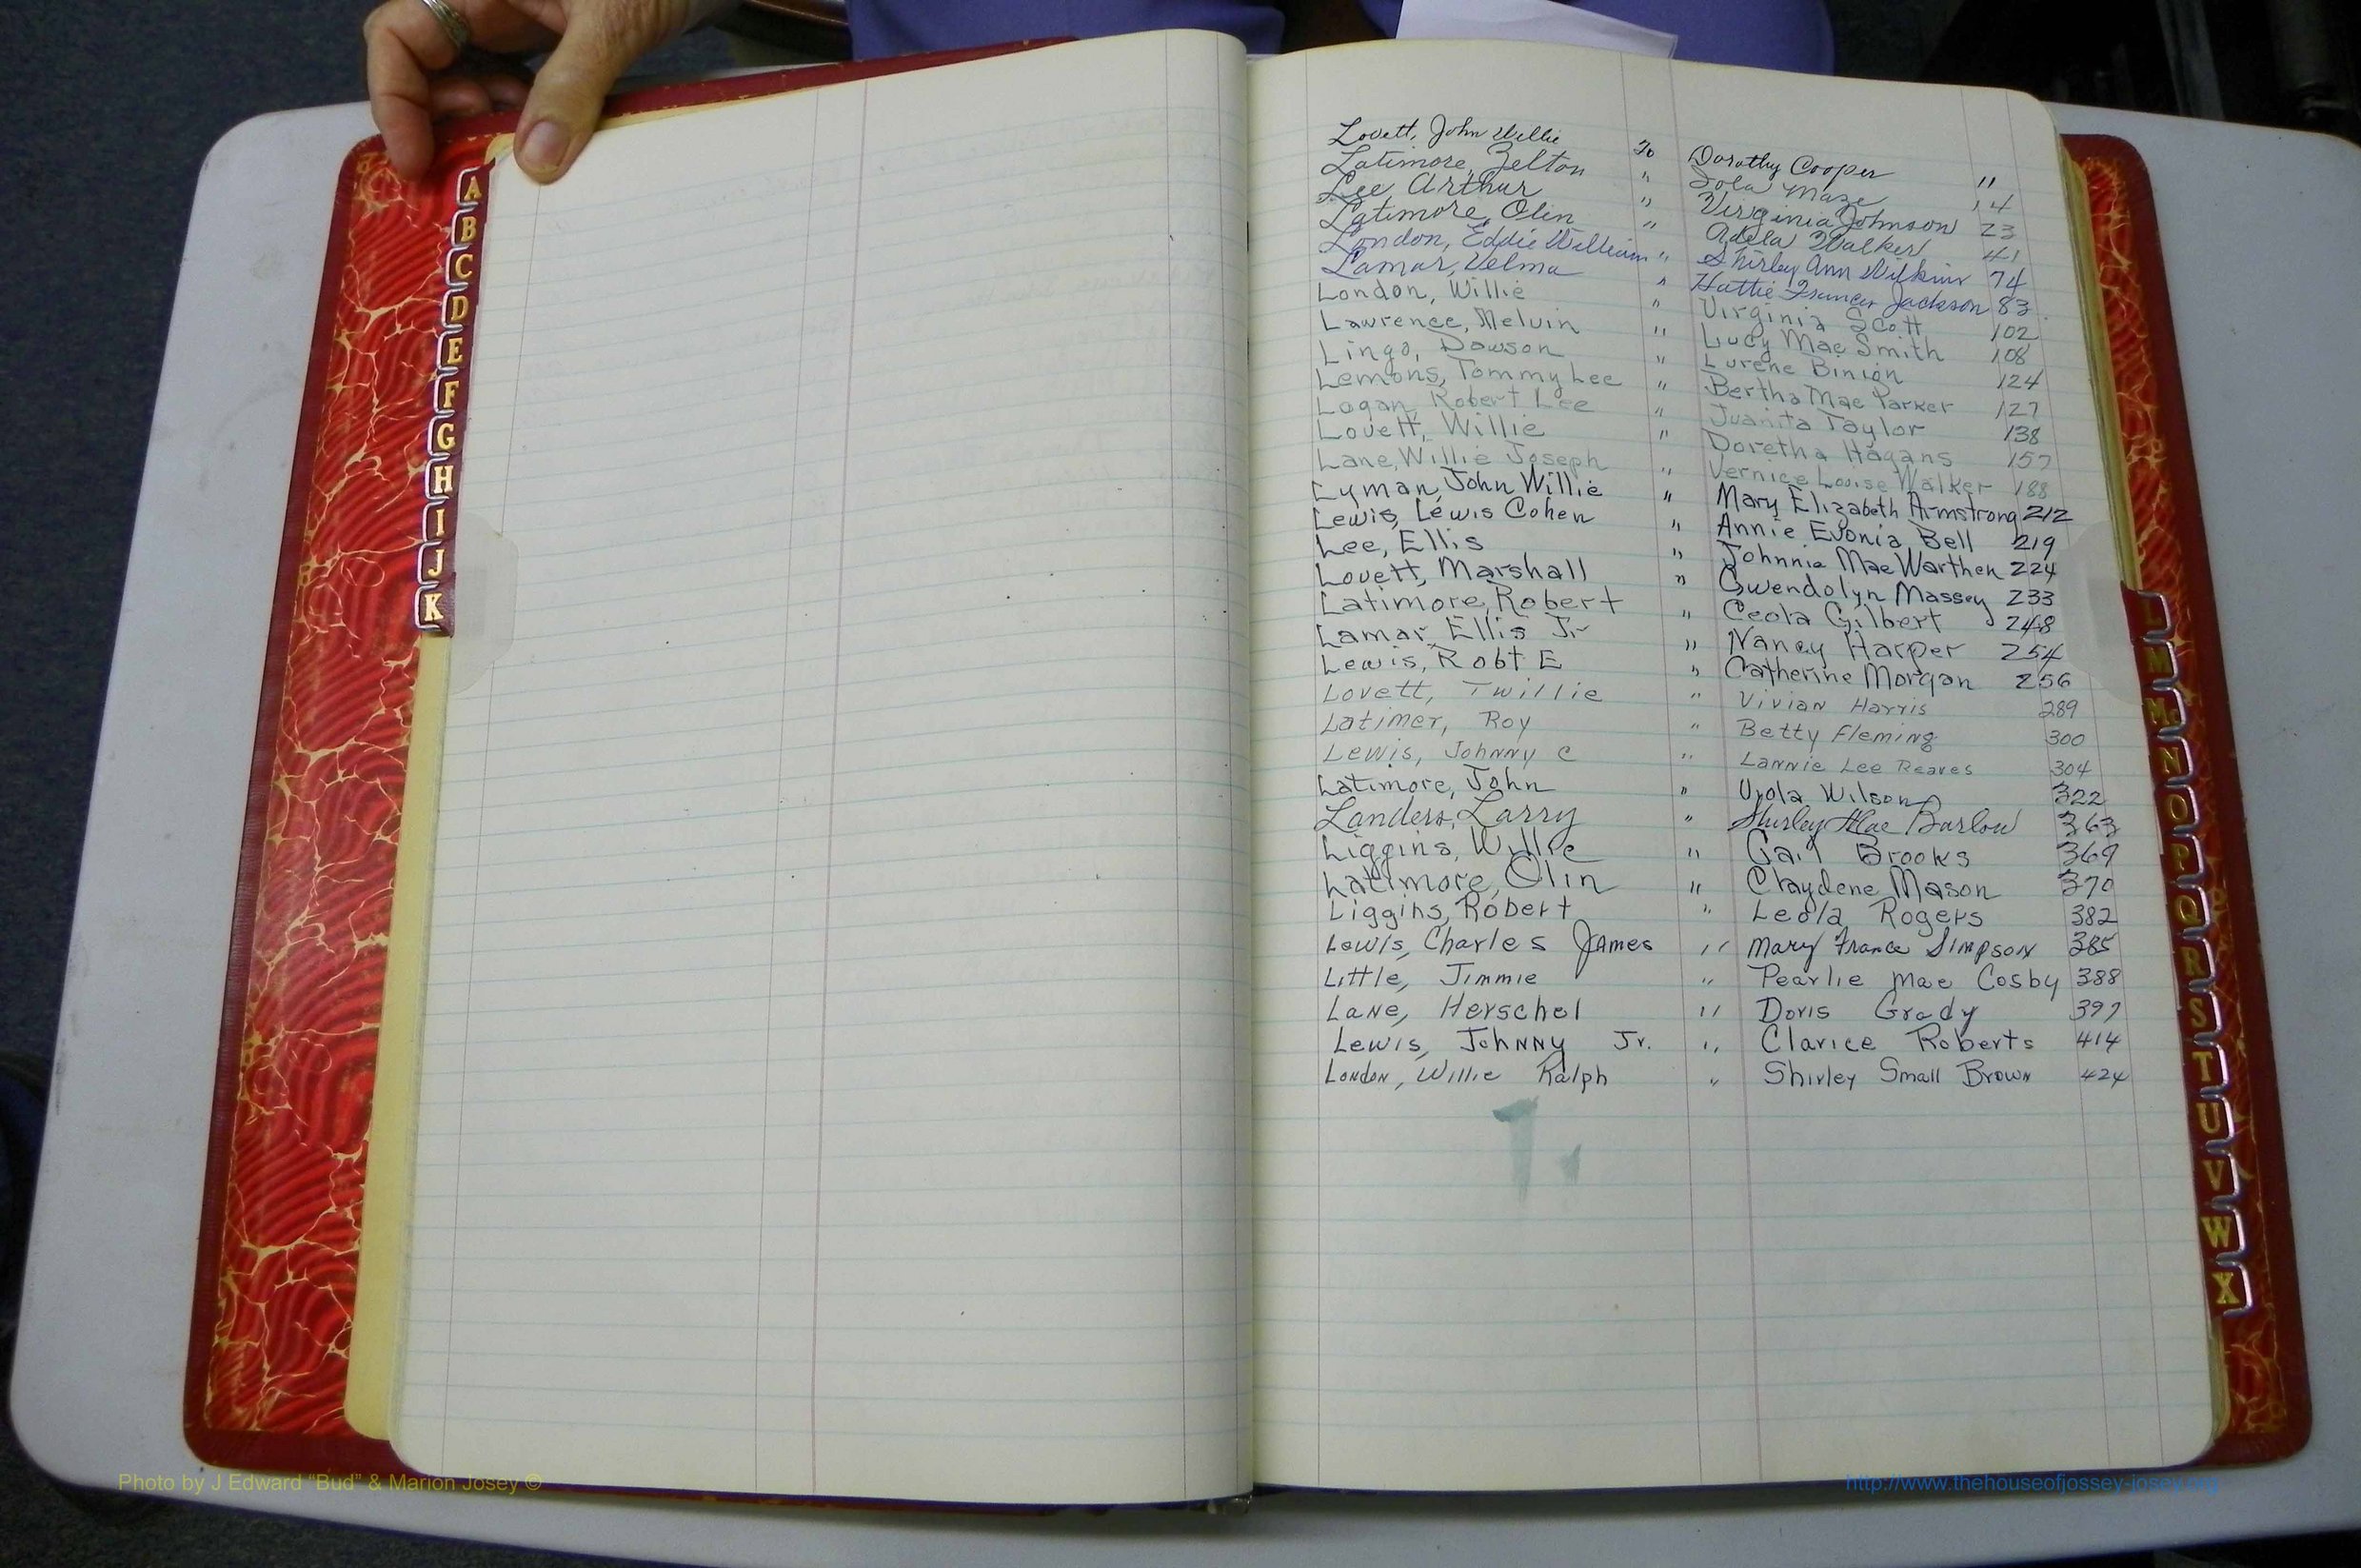 A
B
C
D
E
F
G
H
I
J
K
Lovett, John Willie To Dorothy Cooper 11
Latimore, Zelton " Sola Maze 14
Lee Arthur " Virginia Johnson 23
Latimore, Olin " Adela Walker 41
London, Eddie William " Shirley Ann Wilkins 74
Lamar, Velma " Hattie Frances Jackson 83
London, Willie " Virginia Scott 102
Lawrence, Melvin " Lucy Mae Smith 108
Lingo, Dawson " Lurene Binion 124
Lemons, Tommy Lee " Bertha Mae Parker 127
Logan, Robert Lee " Juanita Taylor 138
Lovett, Willie " Doretha Hagans 157
Lane, Willie Joseph " Vernice Louise Walker 188
Lyman, John Willie " Mary Elizabeth Armstrong 212
Lewis, Lewis Cohen " Annie Evonia Bell 219
Lee, Ellis " Johnnie Mae Warthen 224
Lovett, Marshall " Gwendolyn Massey 233
Latimore, Robert " Ceola Gilbert 248
Lamar, Ellis Jr " Nancy Harper 254
Lewis, Robt E " Catherine Morgan 256
Lovett, Twillie " Vivian Harris 289
Latimer, Roy " Betty Fleming 300
Lewis, Johnny C " Lannie Lee Reaves 304
Latimore, John " Viola Wilson 322
Landers, Larry " Shirley Mae Barlow 363
Liggins, Willie " Gail Brooks 369
Latimore, Olin " Claydene Mason 370
Liggins, Robert " Leola Rogers 382
Lewis, Charles James " Mary France Simpson 385
Little, Jimmie " Pearlie Mae Cosby 388
Lane, Herschel " Doris Grady 397
Lewis, Johnny Jr. " Clarice Roberts 414
London, Willie Ralph " Shirley Small Brown 424
L
M
Mc
N
O
P
Q
R
S
T
U
V
W
X
Photo by J Edward “Bud” & Marion Josey ©
http://www.thehouseofjossey-josey.org